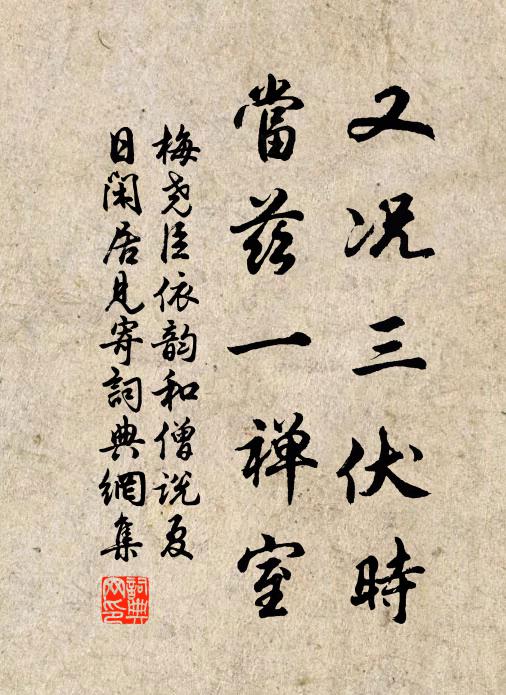 又况三伏時
當兹一禅室
梅尧臣依韵和僧说夏
日闲居見寄詞典網集
詞典网印